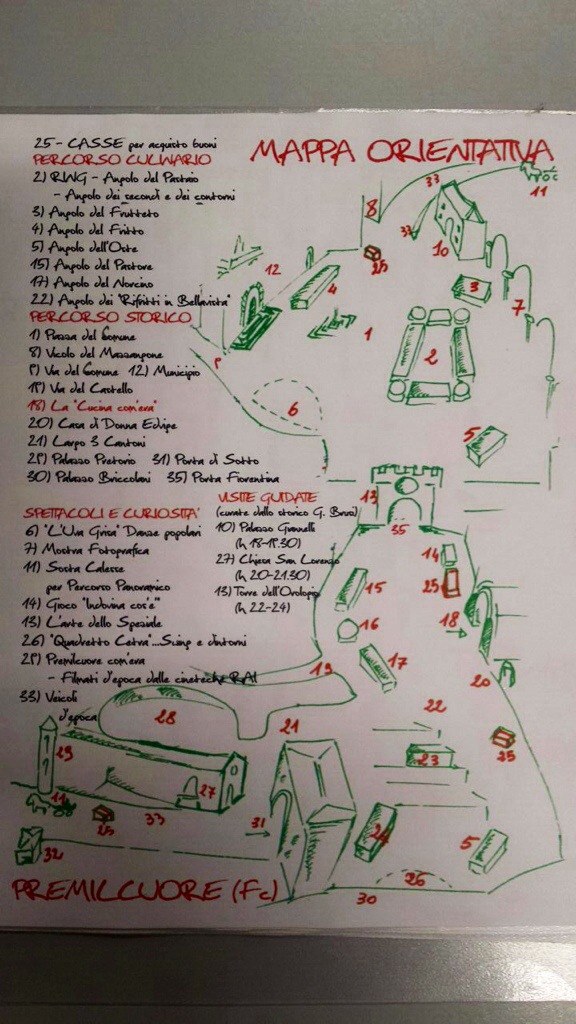 MAPPA ORIENTATIVA
25 - CASSE per acquisto buoni
PERCORSO CULINARIO
2) RING - Angolo del Pastaio
- Angolo dei secondi e dei contorni
3) Angolo del Frutteto
4) Angolo del Fritto
5) Angolo dell'Oste
15) Angolo del Pastore
17) Angolo del Norcino
22) Angolo dei "Rifritti in Bellavista"
PERCORSO STORICO
1) Piazza del Comune
8) Vicolo del Mazzangone
9) Via del Comune 12) Municipio
19) Via del Castello
18) La "Cucina com'era"
20) Casa di Donna Edvige
21) Largo 3 Cantoni
29) Palazzo Pretorio 31) Porta di Sotto
30) Palazzo Briccolani 35) Porta Fiorentina
SPETTACOLI E CURIOSITA'
6) "L'Uva Grisa" Danze popolari
7) Mostra Fotografica
11) Sosta Calesse
per Percorso Panoramico
14) Gioco "Indovina cos'è"
13) L'arte dello Speziale
26) "Quadretto Cetra"...Swing e dintorni
29) Premilcuore com'era
- Filmati d'epoca dalle cineteche RAI
33) Veicoli
d'epoca
VISITE GUIDATE
(curate dallo storico G. Brusi)
10) Palazzo Giannelli
(h 18-19.30)
27) Chiesa San Lorenzo
(h 20-21.30)
13) Torre dell'Orologio
(h 22-24)
33
11
8
33
10
25
12
4
3
7
1
2
9
6
5
13
35
14
15
25
16
18
17
19
20
22
28
21
29
23
25
27
11
25
33
31
24
5
32
26
30
PREMILCUORE (FC)